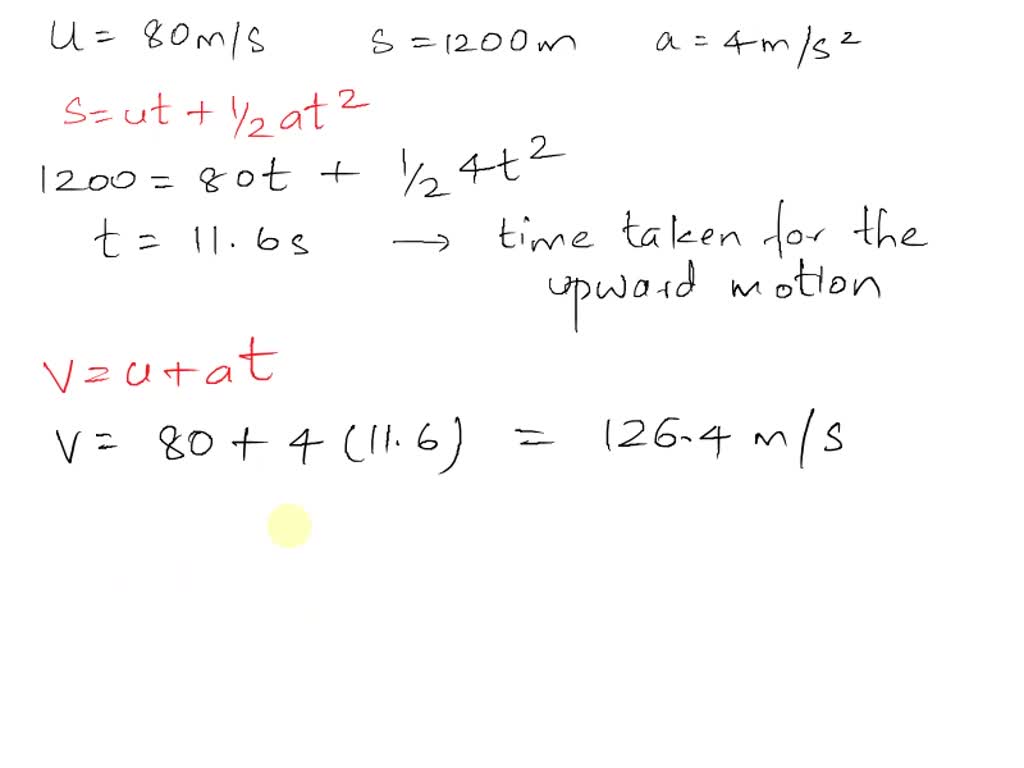 u = 80m/s s = 1200m a = 4m/s²
s = ut + 1/2 at²
1200 = 80t + 1/2 4t²
t = 11.6s → time taken for the
upward motion
v = u + at
v = 80 + 4 (11.6) = 126.4 m/s